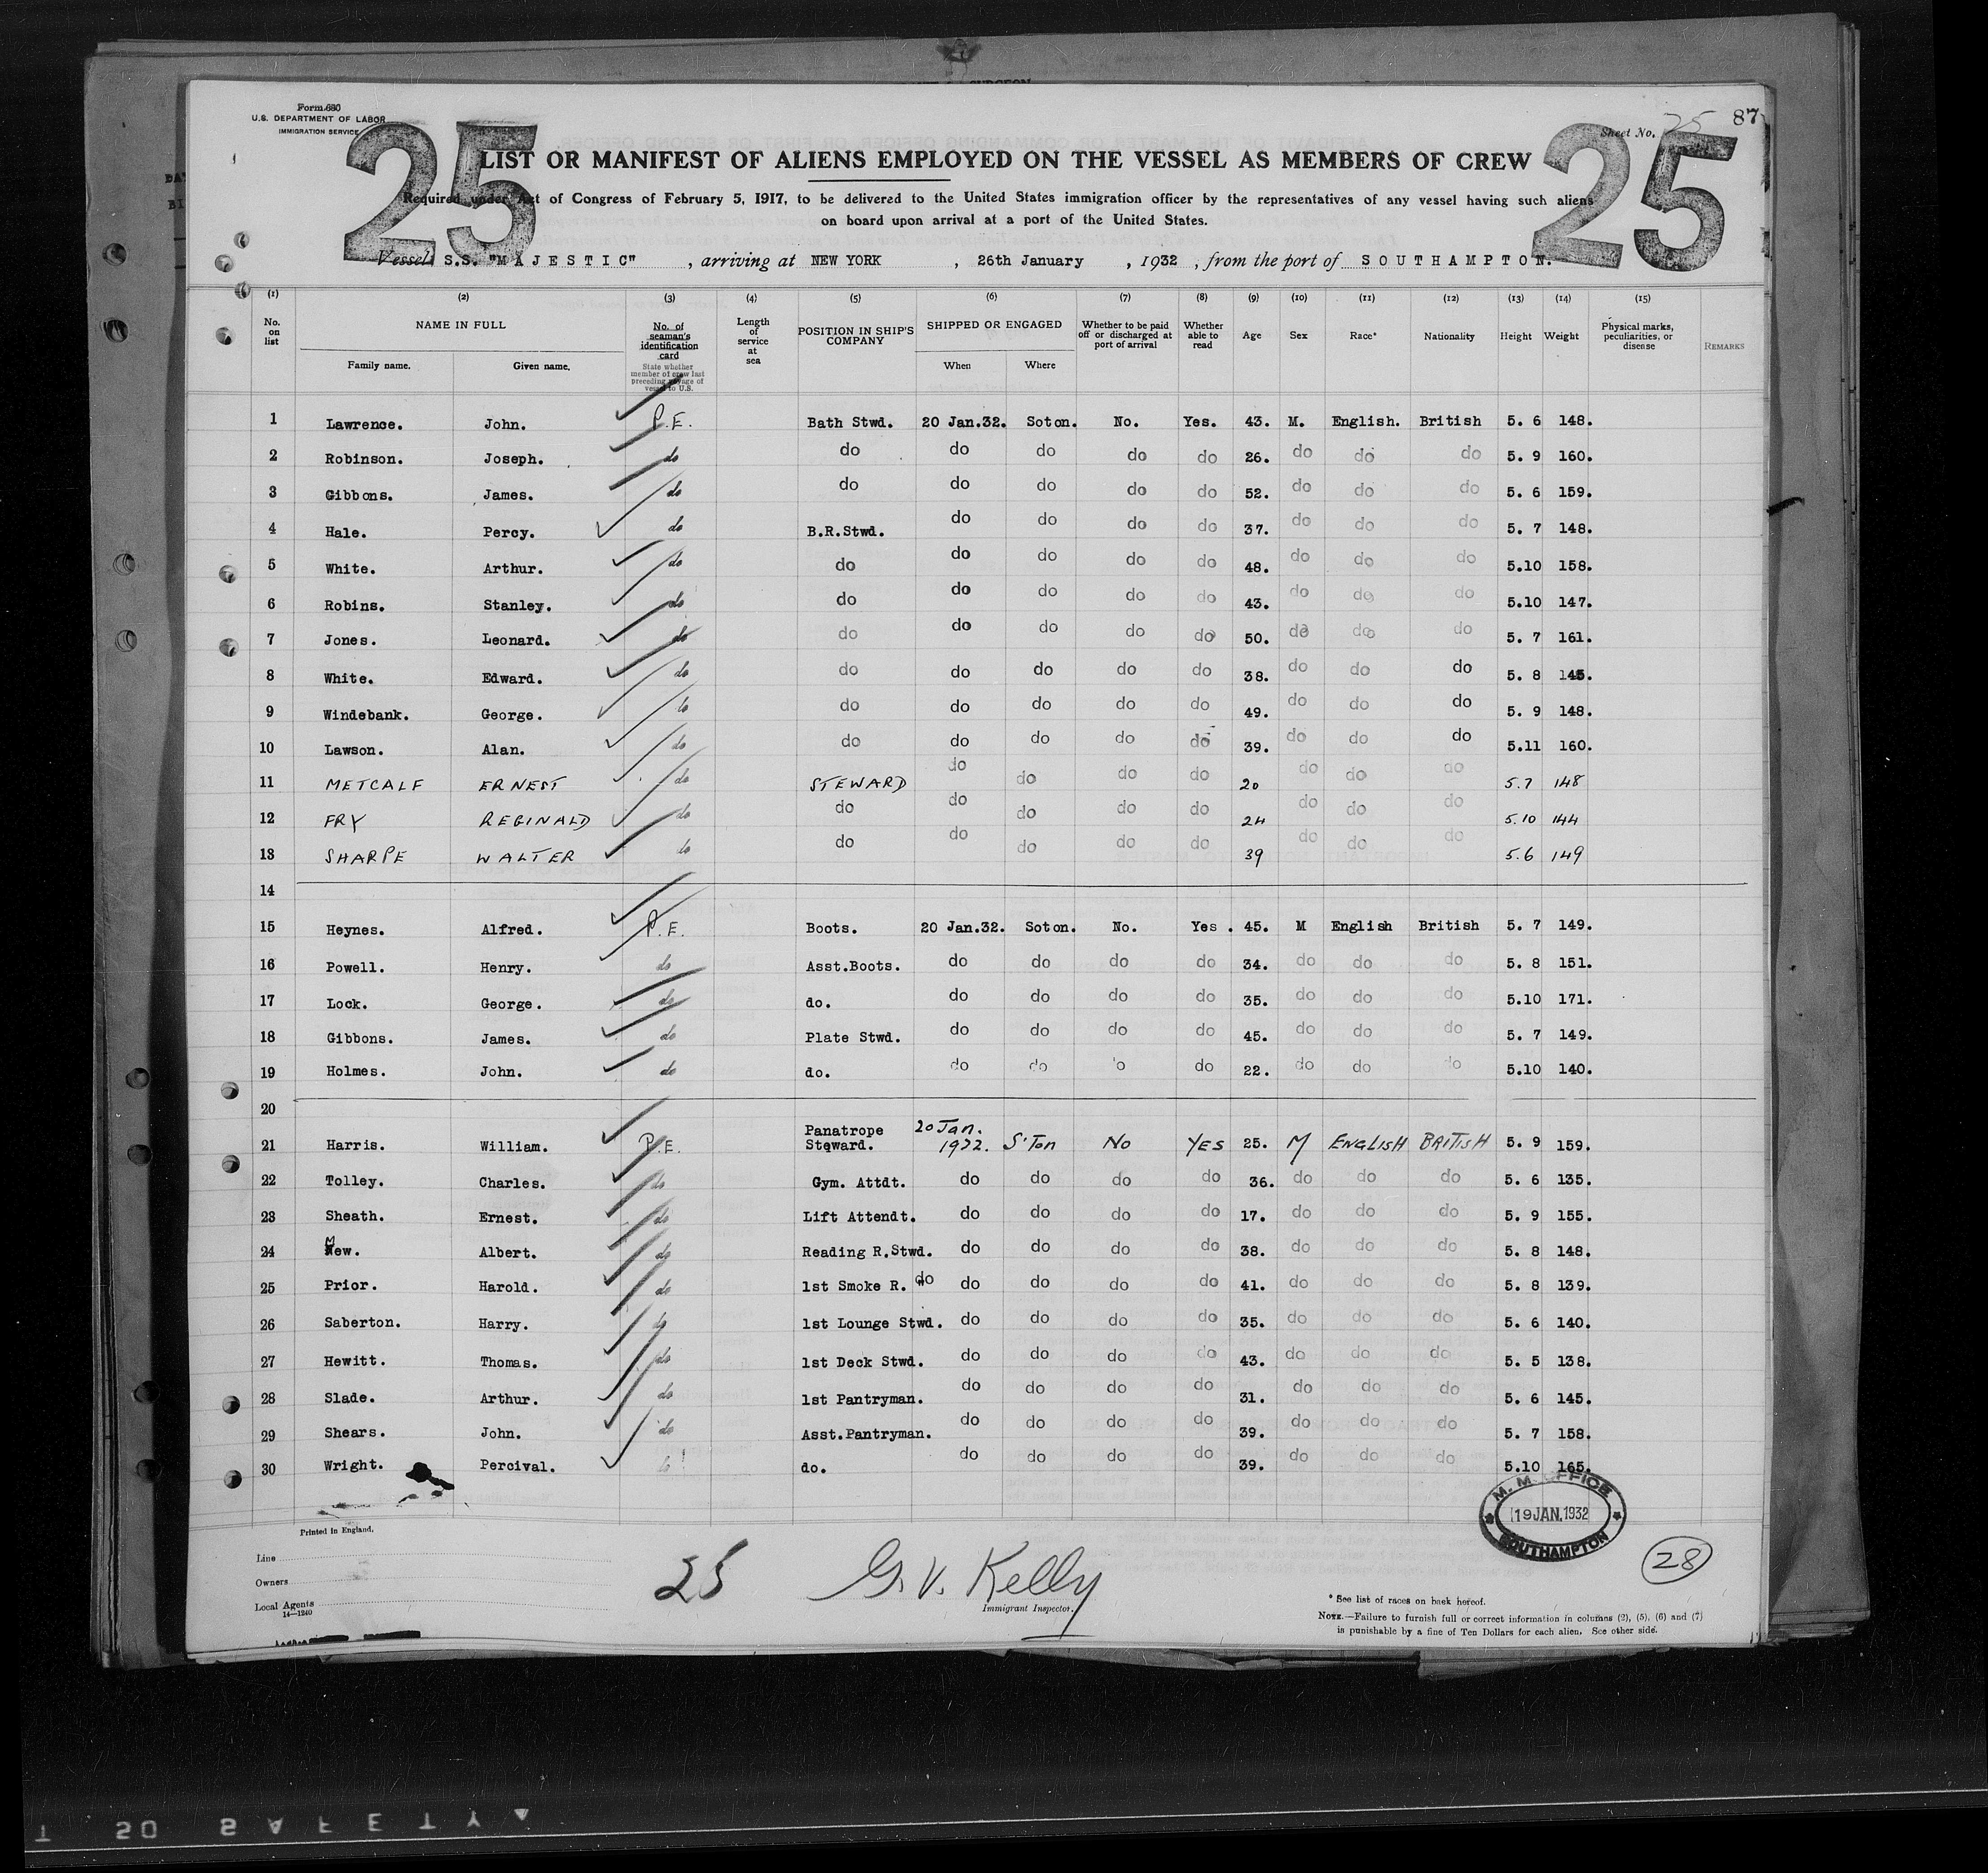 Form 680
U.S. DEPARTMENT OF LABOR
IMMIGRATION SERVICE
25
25
Sheet No. 25
87
LIST OR MANIFEST OF ALIENS EMPLOYED ON THE VESSEL AS MEMBERS OF CREW
Required under Act of Congress of February 5, 1917, to be delivered to the United States immigration officer by the representatives of any vessel having such aliens
on board upon arrival at a port of the United States.
Vessel S.S. "MAJESTIC" , arriving at NEW YORK , 26th January , 1932 , from the port of SOUTHAMPTON.
(1) (2) (3) (4) (5) (6) (7) (8) (9) (10) (11) (12) (13) (14) (15)
No. on list NAME IN FULL Family name. Given name. No. of seaman's identification card State whether member of crew last preceding voyage of vessel to U.S. Length of service at sea POSITION IN SHIP'S COMPANY SHIPPED OR ENGAGED When Where Whether to be paid off or discharged at port of arrival Whether able to read Age Sex Race* Nationality Height Weight Physical marks, peculiarities, or disease REMARKS
1 Lawrence. John. P.E. Bath Stwd. 20 Jan.32. Soton. No. Yes. 43. M. English. British 5. 6 148.
2 Robinson. Joseph. do do do do do do 26. do do do 5. 9 160.
3 Gibbons. James. do do do do do do 52. do do do 5. 6 159.
4 Hale. Percy. do B.R.Stwd. do do do do 37. do do do 5. 7 148.
5 White. Arthur. do do do do do do 48. do do do 5.10 158.
6 Robins. Stanley. do do do do do do 43. do do do 5.10 147.
7 Jones. Leonard. do do do do do do 50. do do do 5. 7 161.
8 White. Edward. do do do do do do 38. do do do 5. 8 145.
9 Windebank. George. do do do do do do 49. do do do 5. 9 148.
10 Lawson. Alan. do do do do do do 39. do do do 5.11 160.
11 METCALF ERNEST do STEWARD do do do do 20 do do do 5.7 148
12 FRY REGINALD do do do do do do 24 do do do 5.10 144
13 SHARPE WALTER do do do do do do 39 do do do 5.6 149
14
15 Heynes. Alfred. P.E. Boots. 20 Jan.32. Soton. No. Yes. 45. M English British 5. 7 149.
16 Powell. Henry. do Asst.Boots. do do do do 34. do do do 5. 8 151.
17 Lock. George. do do. do do do do 35. do do do 5.10 171.
18 Gibbons. James. do Plate Stwd. do do do do 45. do do do 5. 7 149.
19 Holmes. John. do do. do do o do 22. do do do 5.10 140.
20
21 Harris. William. P.E. Panatrope Steward. 20 Jan. 1922. S'Ton No YES 25. M ENGLISH BRITISH 5. 9 159.
22 Tolley. Charles. do Gym. Attdt. do do do do 36. do do do 5. 6 135.
23 Sheath. Ernest. do Lift Attendt. do do do do 17. do do do 5. 9 155.
24 Mew. Albert. do Reading R.Stwd. do do do do 38. do do do 5. 8 148.
25 Prior. Harold. do 1st Smoke R. do do do do do 41. do do do 5. 8 139.
26 Saberton. Harry. do 1st Lounge Stwd. do do do do 35. do do do 5. 6 140.
27 Hewitt. Thomas. do 1st Deck Stwd. do do do do 43. do do do 5. 5 138.
28 Slade. Arthur. do 1st Pantryman. do do do do 31. do do do 5. 6 145.
29 Shears. John. do Asst.Pantryman. do do do do 39. do do do 5. 7 158.
30 Wright. Percival. do do. do do do do 39. do do do 5.10 165.
M. M. OFFICE
19 JAN. 1932
SOUTHAMPTON
Printed in England.
Line
Owners
Local Agents
14—1240
25
G. V. Kelly
Immigrant Inspector.
28
* See list of races on back hereof.
NOTE.—Failure to furnish full or correct information in columns (2), (5), (6) and (7)
is punishable by a fine of Ten Dollars for each alien. See other side.
SAFETY